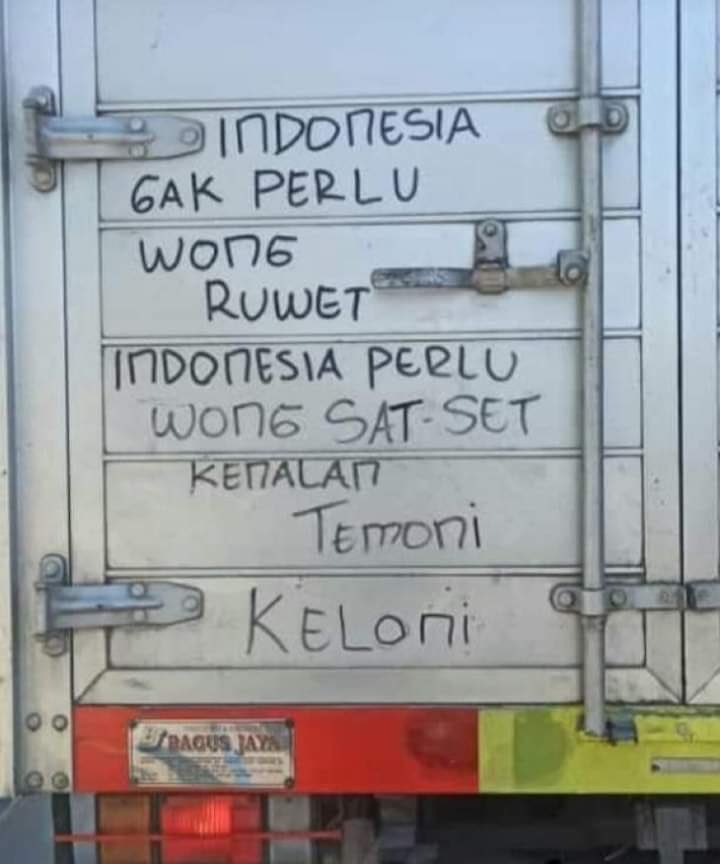 INDONESIA
GAK PERLU
WONG
RUWET
INDONESIA PERLU
WONG SAT-SET
KENALAN
TEMONI
KELONI
BAGUS JAYA